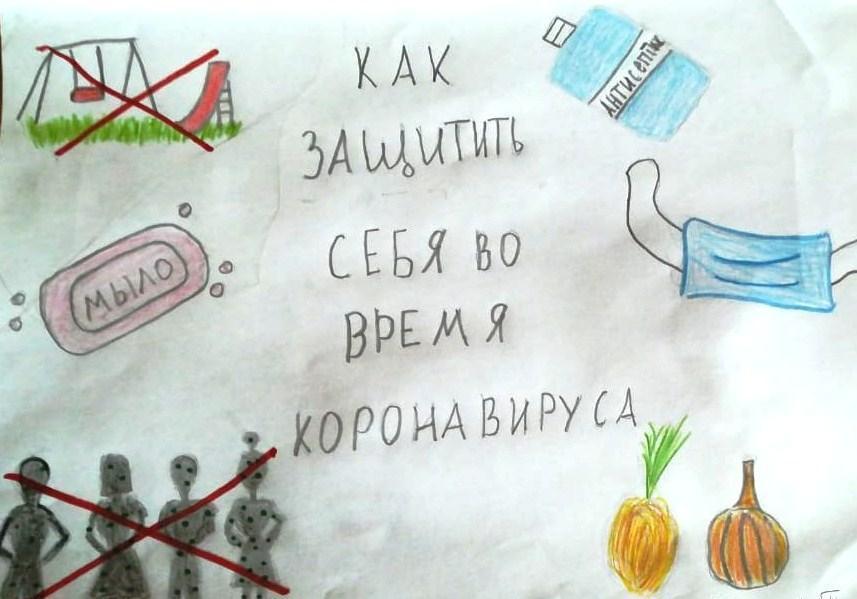 КАК
ЗАЩИТИТЬ
СЕБЯ ВО
ВРЕМЯ
КОРОНАВИРУСА
АНТИСЕПТИК
МЫЛО